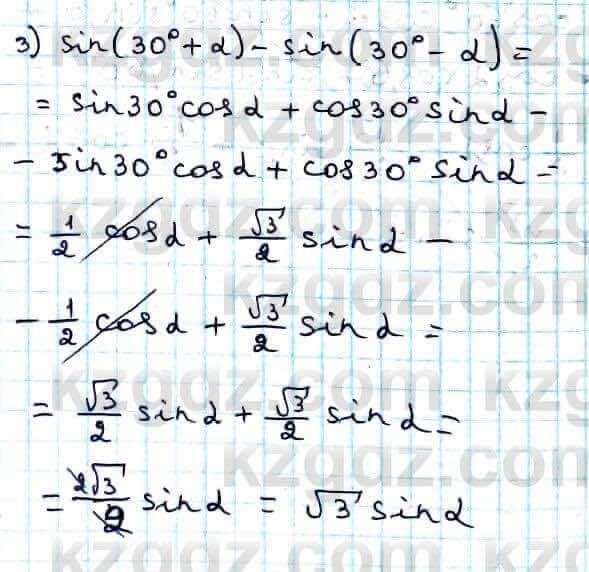 3) sin(30°+α) - sin(30°- α) =
= sin30°cosα + cos30°sinα -
- sin30°cosα + cos30° sinα =
= 1/2 cosα + √3/2 sinα -
- 1/2 cosα + √3/2 sinα =
= √3/2 sinα + √3/2 sinα =
= 2√3/2 sinα = √3 sinα
kzgdz.com